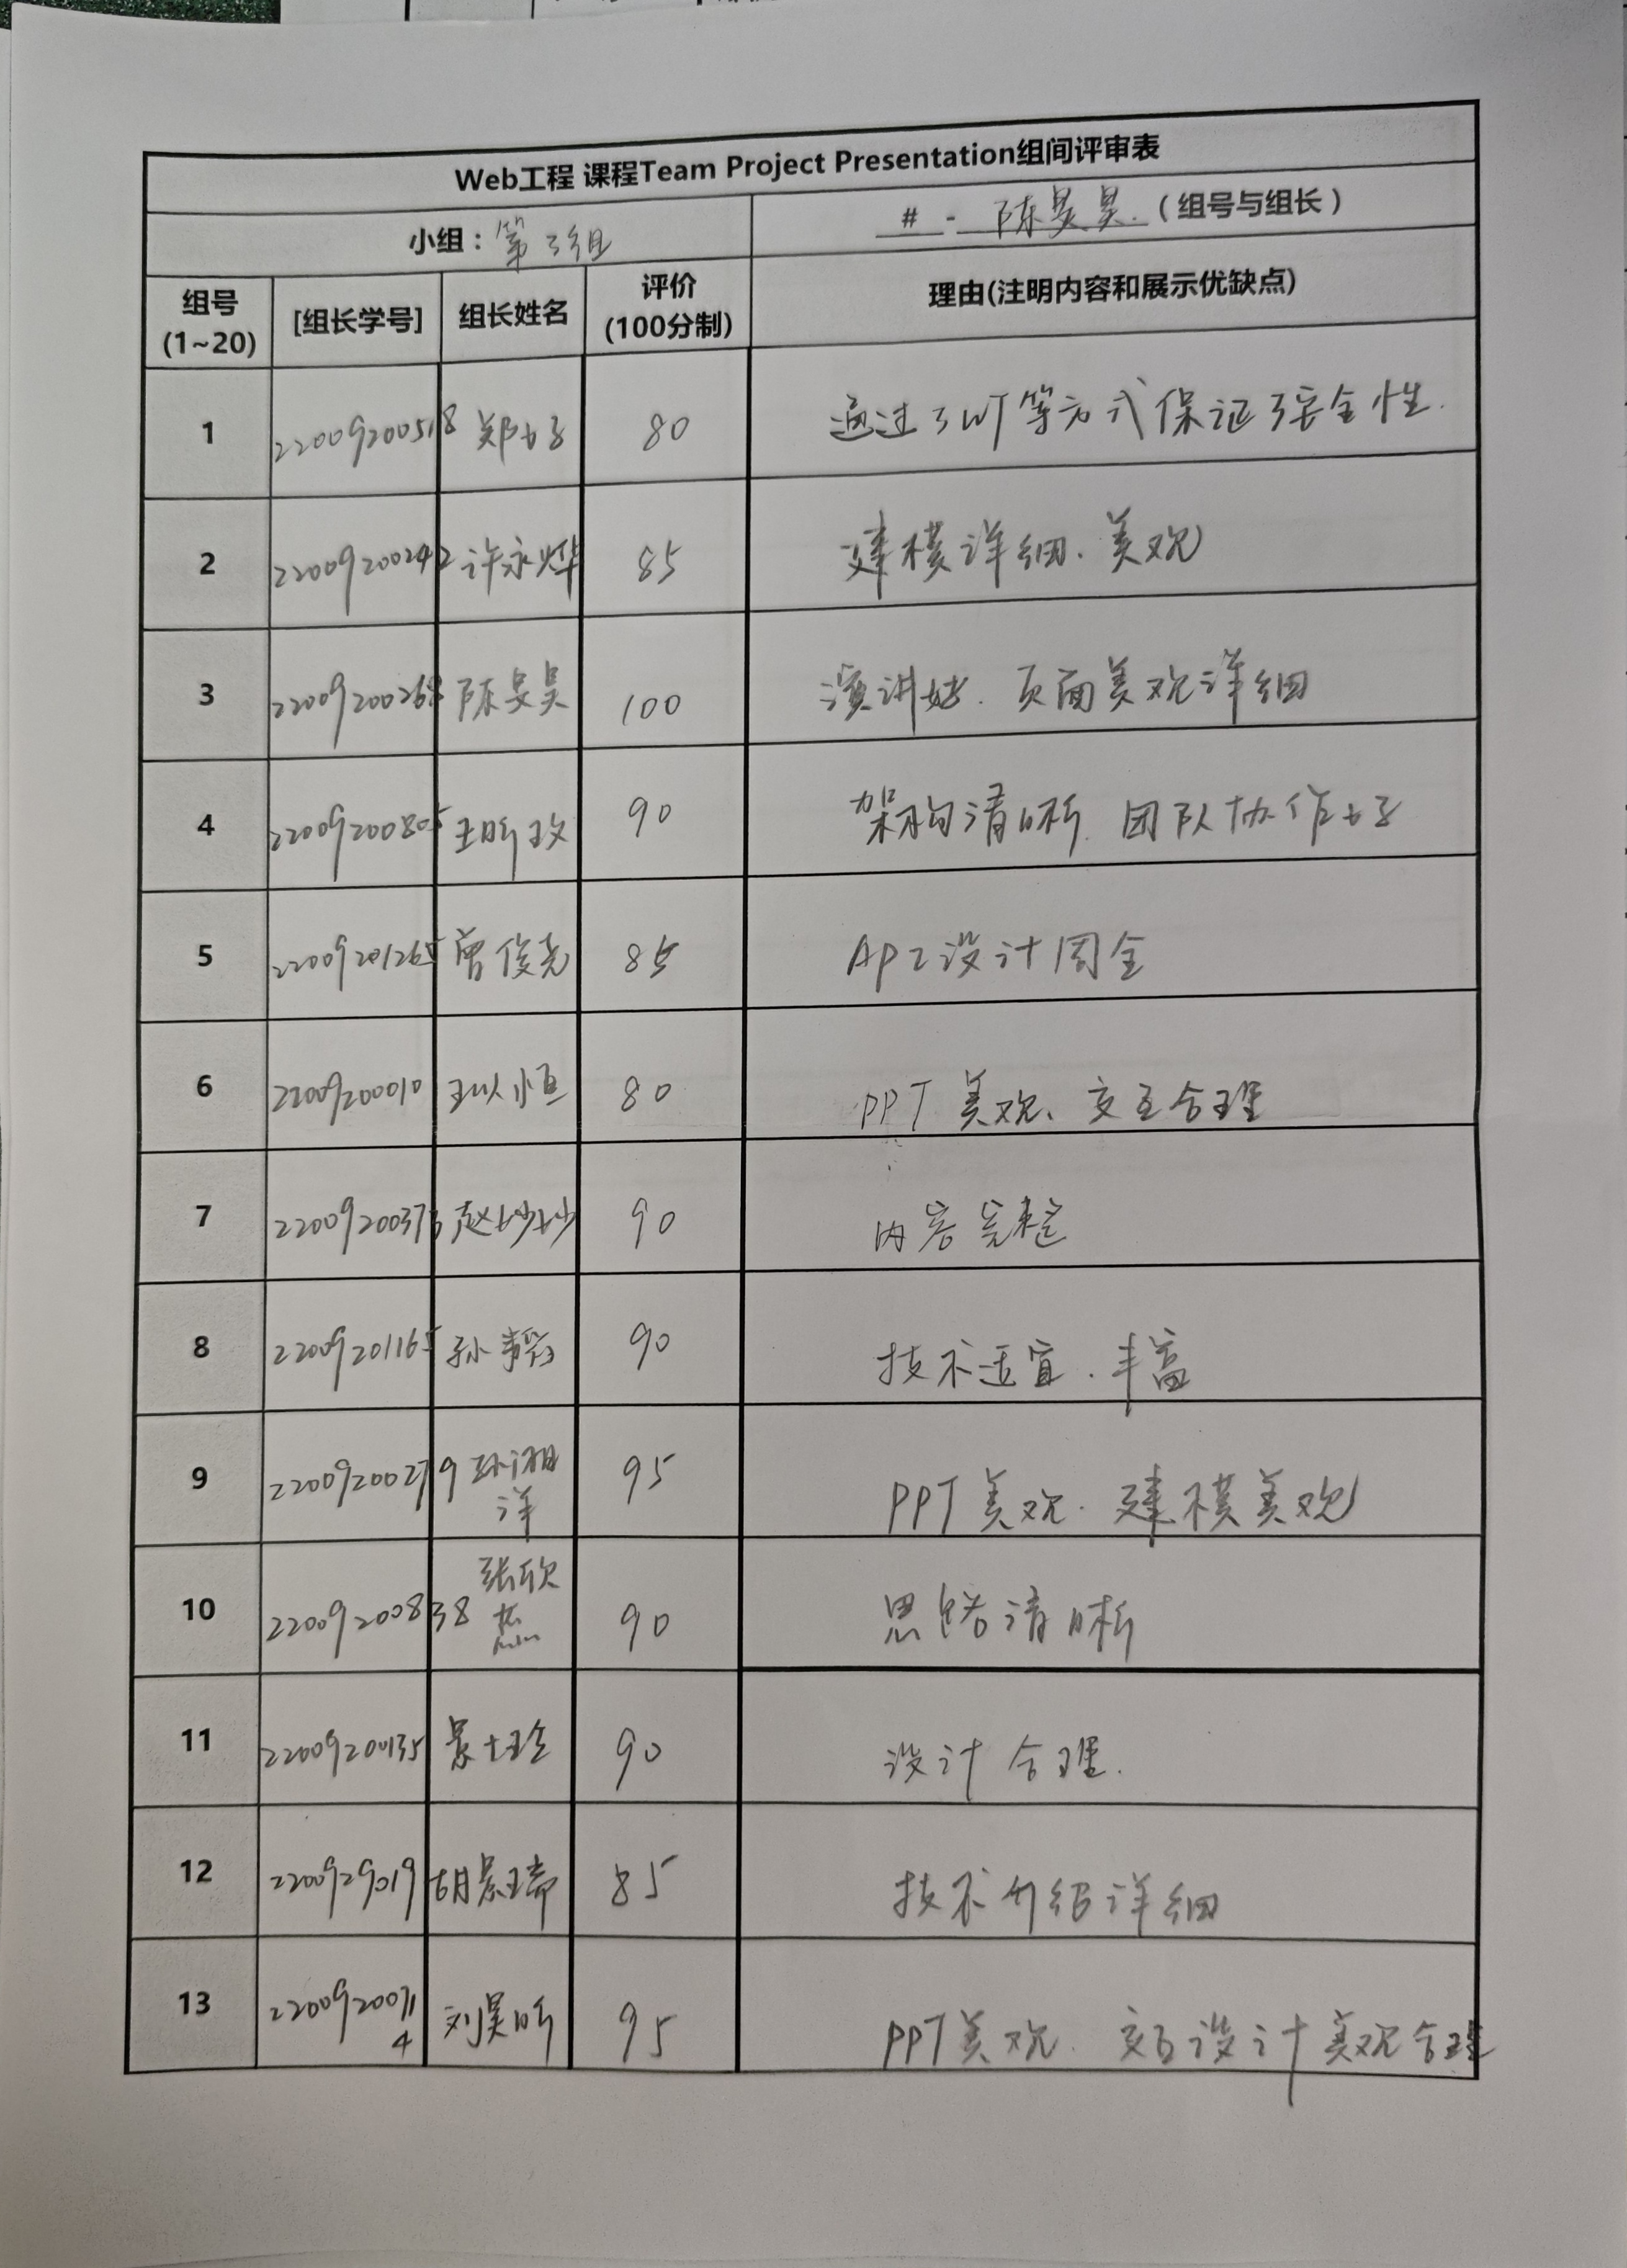 Web工程 课程Team Project Presentation组间评审表
小组：第3组 # - 陈昊昊.（组号与组长）
组号(1~20) [组长学号] 组长姓名 评价(100分制) 理由(注明内容和展示优缺点)
1 22009200518 郑好 80 通过JWT等方式保证了安全性.
2 22009200242 许永烨 85 建模详细.美观
3 22009200268 陈昊昊 100 演讲好.页面美观详细
4 22009200805 王昕玫 90 架构清晰.团队协作好
5 22009201265 曾俊尧 85 API设计周全
6 2200920001 王以恒 80 PPT美观、交互合理
7 22009200373 赵妙妙 90 内容完整
8 22009201165 孙 90 技术适宜.丰富
9 22009200279 孙湘洋 95 PPT美观.建模美观
10 22009200838 张欣然 90 思路清晰
11 22009200135 90 设计合理.
12 2200929019 胡景瑞 85 技术介绍详细
13 22009200714 刘昊昕 95 PPT美观.交互设计美观合理